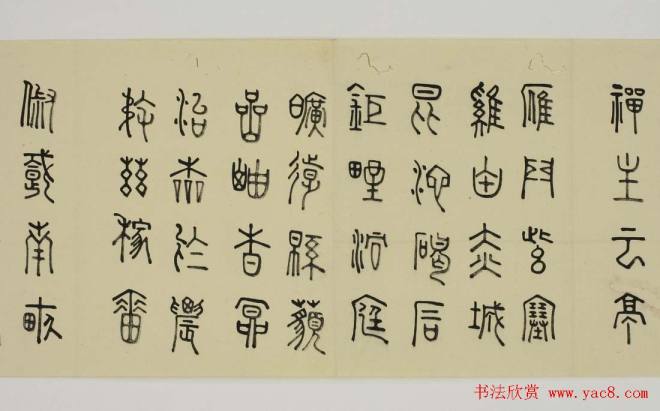 禪主云亭
雁門紫塞
雞田赤城
昆池碣石
鉅野洞庭
曠遠緜藐
嵒岫杳冥
治本於農
務茲稼穡
俶載南畝
书法欣赏 www.yac8.com